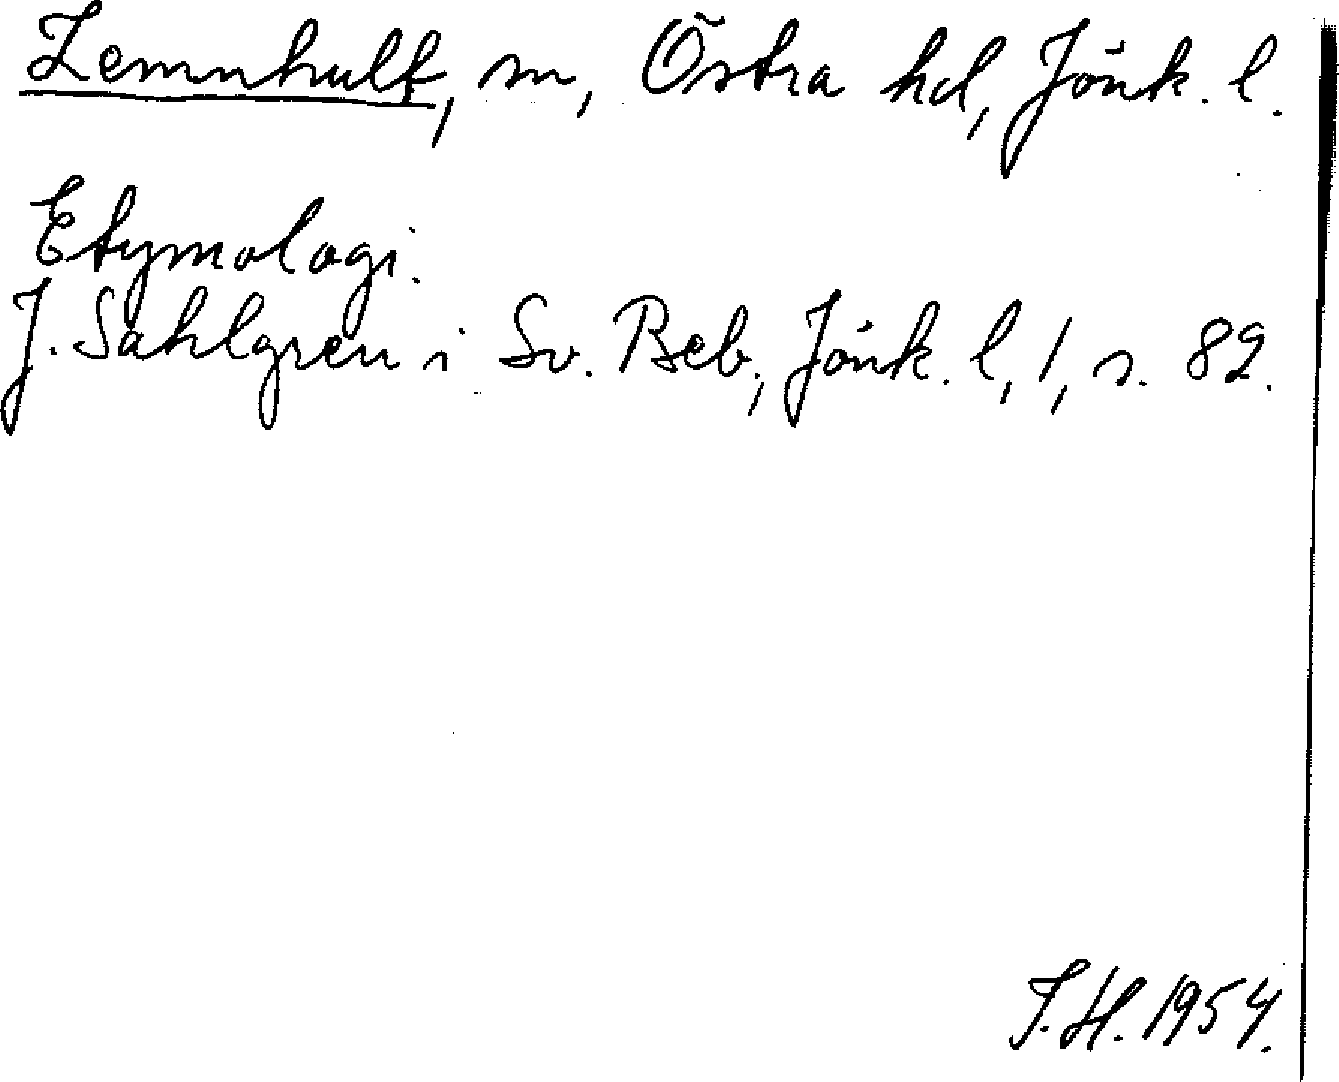 Lemnhult, sn, Östra hd, Jönk. l.
Etymologi.
J. Sahlgren i Sv. Beb., Jönk. l, 1, s. 82.
I.H. 1954.